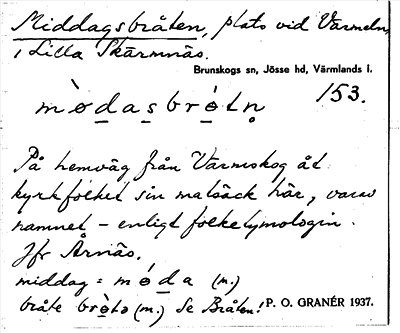 Middagsbråten, plats vid Värmeln
i Lilla Skärmnäs.
Brunskogs sn, Jösse hd, Värmlands l.
mø̀das̱brø̀tn̥ 153.
På hemväg från Värmskog åt
kyrkfolket sin matsäck här, varav
namnet – enligt folketymologin.
Jfr Årnäs.
middag = mǿda (m.)
bråte brø̀tə (m.) Se Bråten! P. O. GRANÉR 1937.